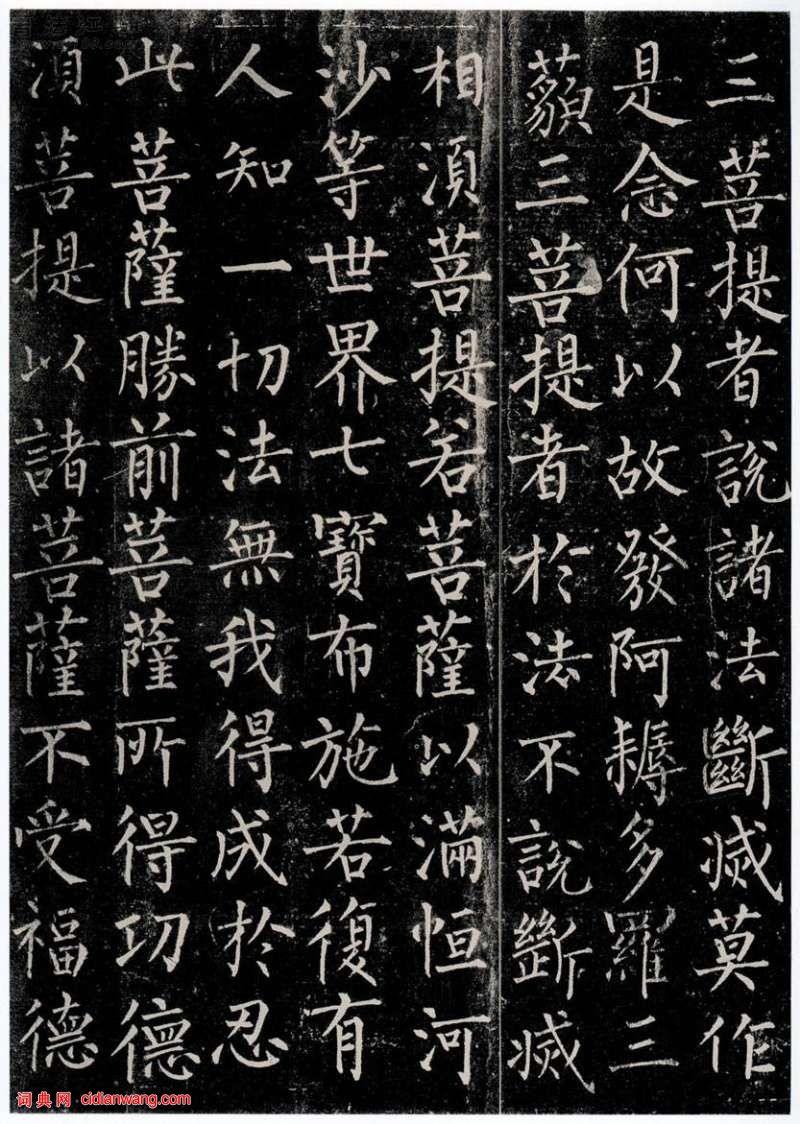 三菩提者說諸法斷滅莫作
是念何以故發阿耨多羅三
藐三菩提者於法不說斷滅
相須菩提若菩薩以滿恒河
沙等世界七寶布施若復有
人知一切法無我得成於忍
此菩薩勝前菩薩所得功德
須菩提以諸菩薩不受福德
词典网 cidianwang.com